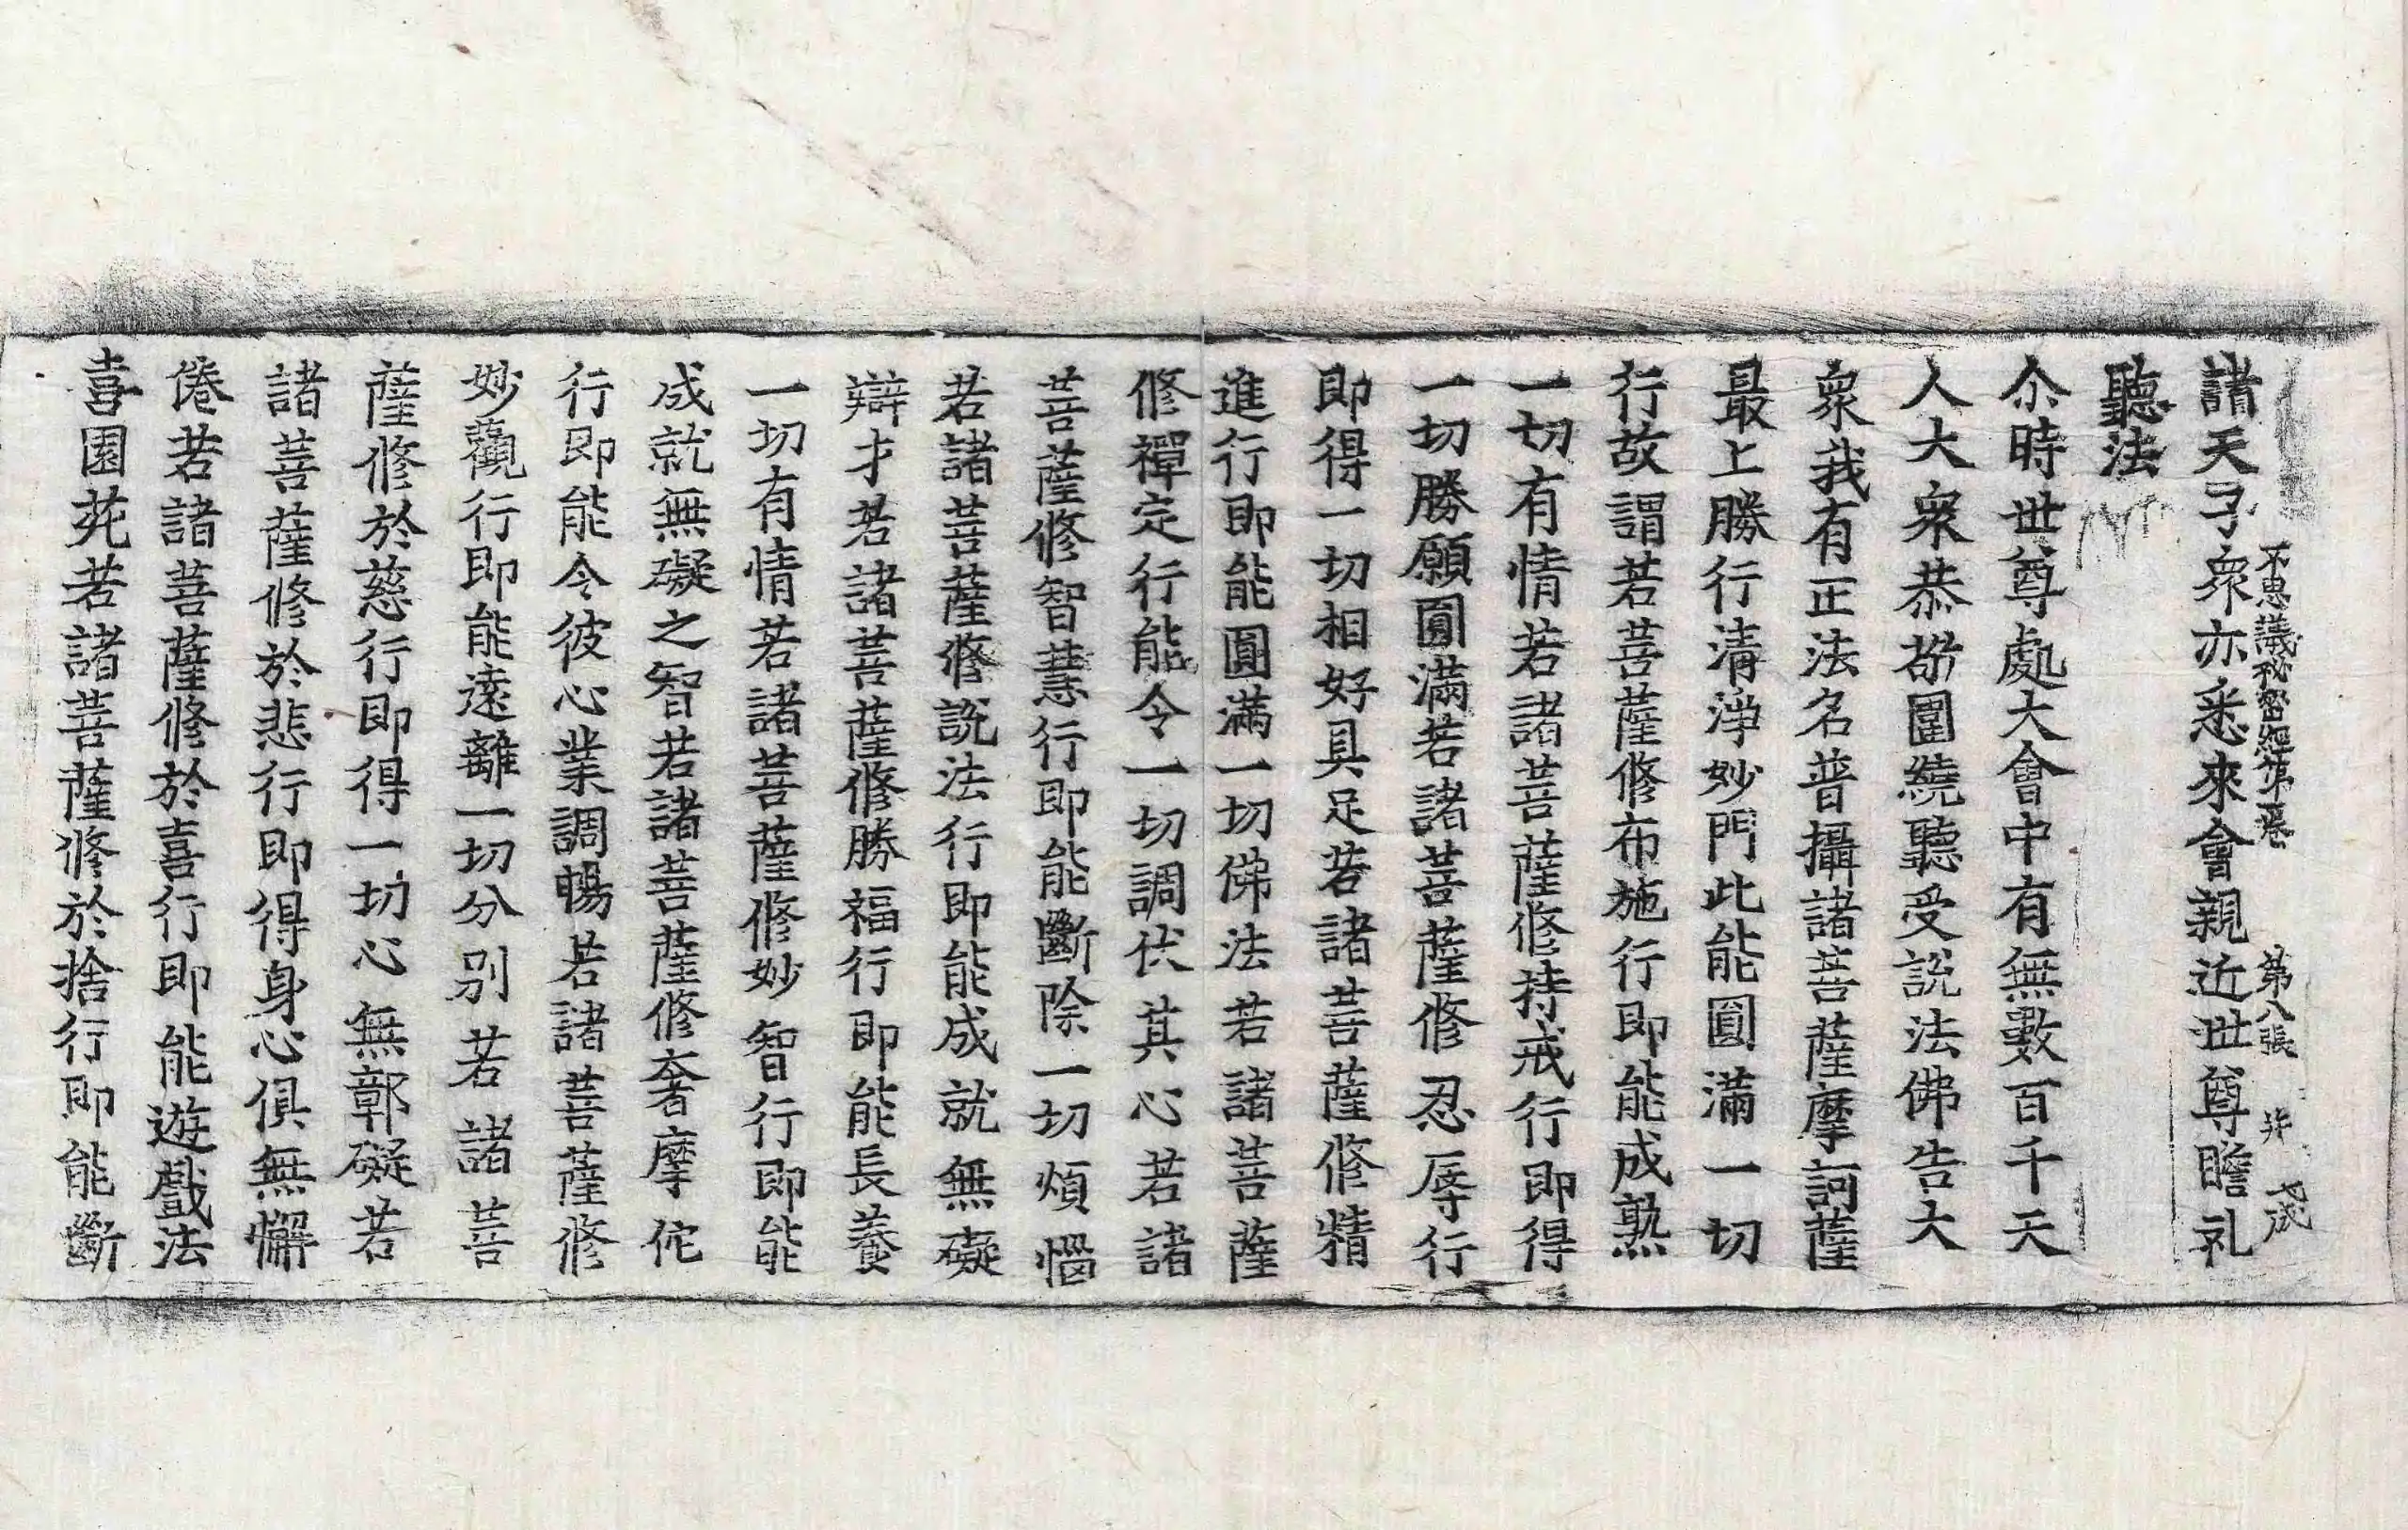 不思議秘密經第一卷 第八張
諸天子衆亦悉來會親近世尊瞻礼
聽法
尒時世尊處大會中有無數百千天
人大衆恭敬圍繞聽受說法佛告大
衆我有正法名普攝諸菩薩摩訶薩
最上勝行清淨妙門此能圓滿一切
行故謂若菩薩修布施行即能成熟
一切有情若諸菩薩修持戒行即得
一切勝願圓滿若諸菩薩修忍辱行
即得一切相好具足若諸菩薩修精
進行即能圓滿一切佛法若諸菩薩
修禪定行能令一切調伏其心若諸
菩薩修智慧行即能斷除一切煩惱
若諸菩薩修說法行即能成就無礙
辯才若諸菩薩修勝福行即能長養
一切有情若諸菩薩修妙智行即能
成就無礙之智若諸菩薩修奢摩佗
行即能令彼心業調暢若諸菩薩修
妙觀行即能遠離一切分別若諸菩
薩修於慈行即得一切心無鄣礙若
諸菩薩修於悲行即得身心俱無懈
倦若諸菩薩修於喜行即能遊戲法
喜園苑若諸菩薩修於捨行即能斷